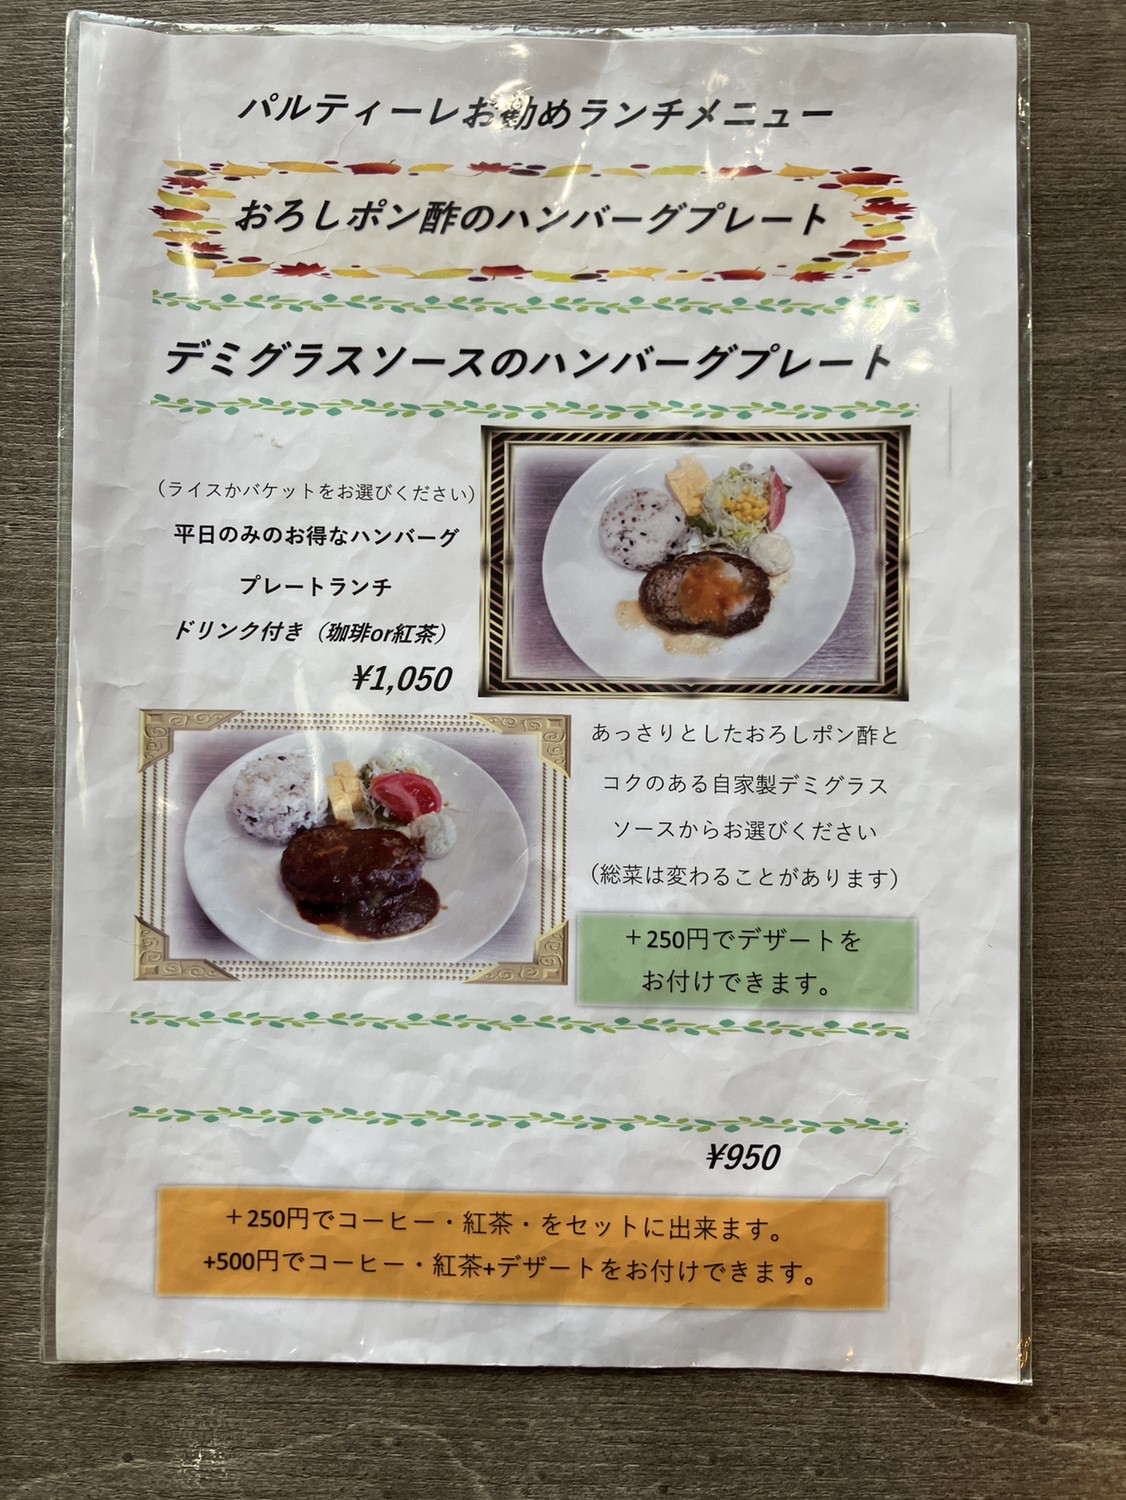 パルティーレお勧めランチメニュー
おろしポン酢のハンバーグプレート
デミグラスソースのハンバーグプレート
（ライスかバケットをお選びください）
平日のみのお得なハンバーグ
プレートランチ
ドリンク付き（珈琲or紅茶）
¥1,050
あっさりとしたおろしポン酢と
コクのある自家製デミグラス
ソースからお選びください
（総菜は変わることがあります）
＋250円でデザートを
お付けできます。
¥950
＋250円でコーヒー・紅茶・をセットに出来ます。
+500円でコーヒー・紅茶+デザートをお付けできます。